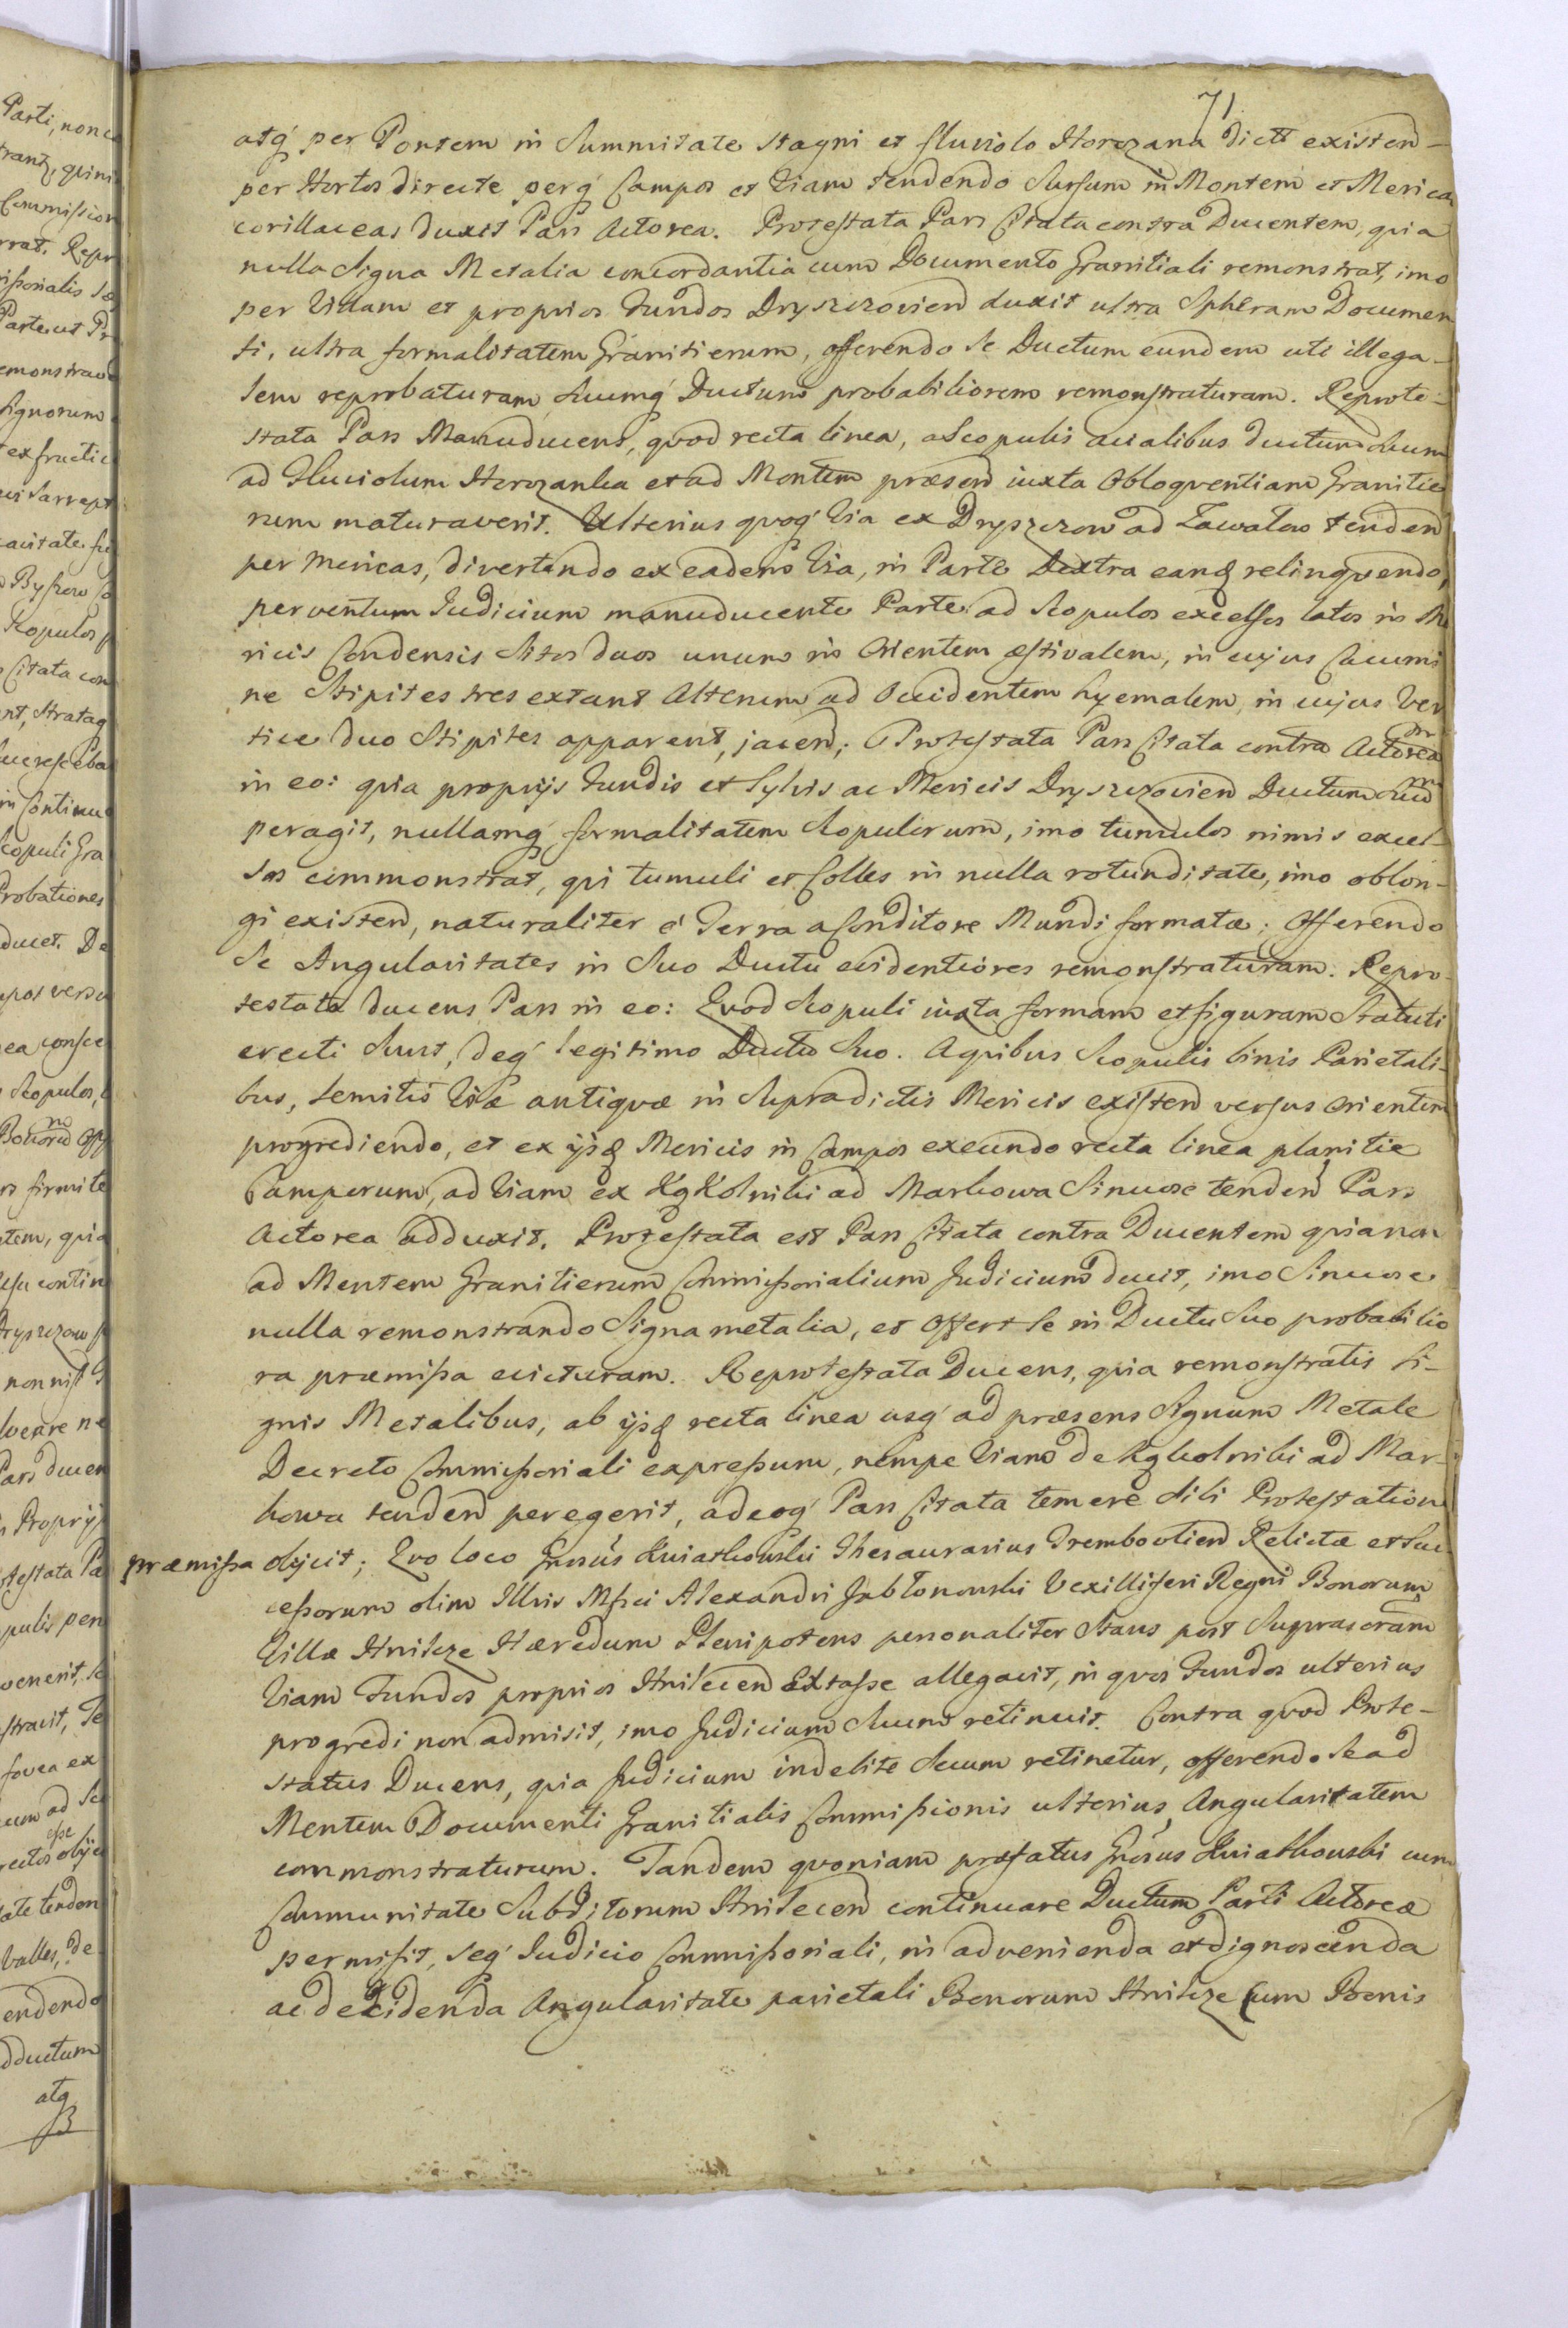 71
atq́ per Pontem in Summitate Stagni et fluviolo Horozana dictt existend-
per Hortos directe perq́ Campos et Viam tendendo Sursum in Montem et Merica
corillaceas duxit Pars Actorea. Protestata Pars Citata contra Ducentem, quia
nulla Signa Metalia concordantia cum Documento Granitiali remonstrat, imo
per Villam et proprios Fundos Dryszczovien duxit ultra Spheram Documen
ti, ultra formalitatem Granitierum, offerendo Se Ductum eundem uti illega-
lem reprobaturam Suumq́ Ductum probabiliorem remonstraturam. Reprote-
stata Pars Manuducens, quod recta linea, a Scopulis acialibus ductum Suum
ad Fluviolum Horozanka et ad Montem præsend iuxta Obloquentiam Granitie
rum maturaverit. Ulterius quoq́ Via ex Dryszczow ad Zawalow tendend
per Mericas, divertendo ex eadem Via, in Parte Dextra eamq relinquendo,
perventum Iudicium manuducente Parte ad Scopulos excelsos latos in Me
ricis Condensis Sitos duos unum in Orientem æstivalem, in cujus Cacumi
ne Stipites tres extant Alterum ad Occidentem hyemalem, in cujus Ver
tice duo Stipites apparent, jacend; Protestata Pars Citata contra Actoream
in eo: quia proprijs Fundis et Sylvis ac Mericis Dryszczovien Ductum Suum
peragit, nullamq́ formalitatem Scopulorum, imo tumulos nimis excel-
sos commonstrat, qui tumuli et Colles in nulla rotunditate, imo oblon-
gi existend, naturaliter é Terra a Conditore Mundi formatæ; Offerendo
Se Angularitates in Suo Ductu evidentiores remonstraturam. Repro-
testata ducens Pars in eo: Quod Scopuli iuxta formam et figuram Statuti
erecti Sunt, deq́ legitimo Ductu Suo. A quibus Scopulis binis Parietali-
bus, Semitis Viæ antiquæ in Supradictis Mericis existend versus Orientem
progrediendo, et ex ijsq Mericis in Campos exeundo recta linea planitie
Camporum, ad Viam ex Kąkolniki ad Markowa Sinuose tendend Pars
Actorea adduxit. Protestata est Pars Citata contra Ducentem quia non
ad Mentem Granitierum Commissorialium Judicium ducit, imo Sinuose
nulla remonstrando Signa metalia, et Offert Se in Ductu Suo probabilio
ra præmissa evicturam. Reprotestata Ducens, quia remonstratis Si-
gnis Metalibus, ab ijsq recta linea usq́ ad præsens Signum Metale
Decreto Commissoriali expressum, nempe Viam de Kąkolniki ad Mar-
kowa tendend peregerit, adeoq́ Pars Citata temere Sibi Protestation
præmissa objicit; Quo loco Gnosus Kwiatkowski Thesaurarius Trembovlien Relictæ et Suc
cessorum olim Illris Mfici Alexandri Jabłonowski Vexilliferi Regni Bonorum
Villæ Hnilcze Hæredum Plenipotens personaliter Stans post Suprascram
Viam Fundos proprios Hnilecen Extasse allegavit, in quos Fundos ulterius
progredi non admisit, imo Judicium Suum retinuit. Contra quod Prote-
status Ducens, quia Judicium indebite Suum retinetur, offerendo Se ad
Mentem Documenti Granitialis Commissionis ulterius Angularitatem
commonstraturum. Tandem quoniam præfatus Gnosus Kwiatkowski cum
Communitate Subditorum Hnilecen continuare Ductum Parti Actoreæ
permisit, Seq́ Iudicio Commissoriali, in advenienda et dignoscenda
ac decidenda Angularitate parietali Bonorum Hnilcze Cum Bonis